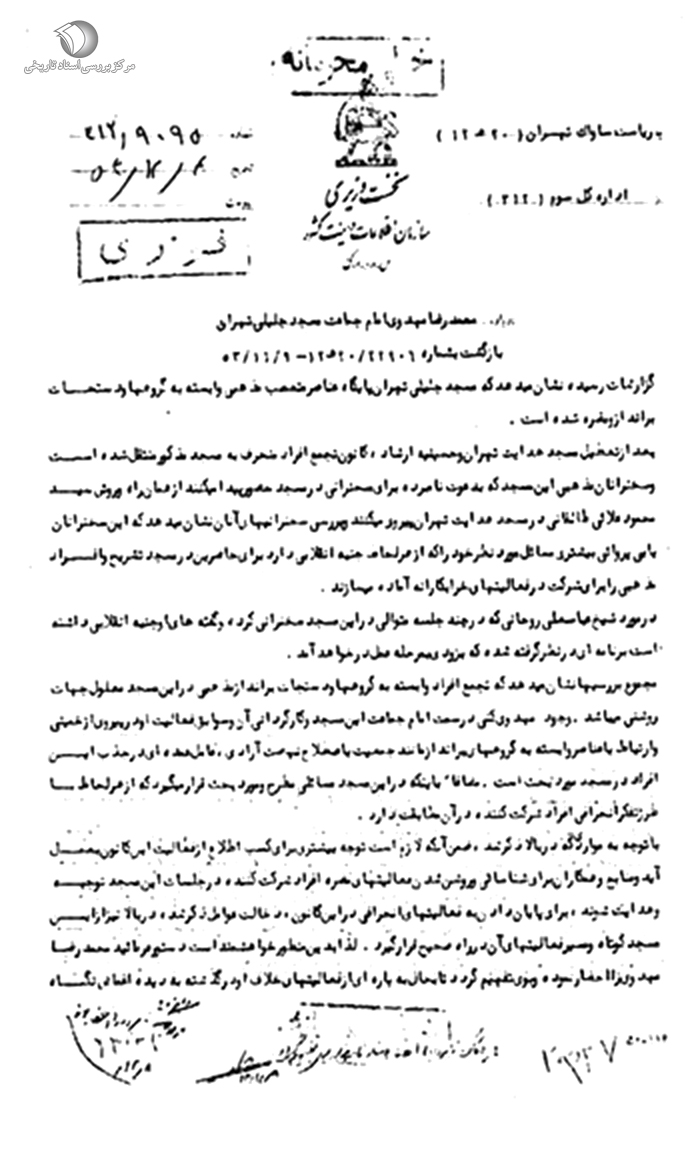 مرکز بررسی اسناد تاریخی
محرمانه
به ریاست ساواک تهران (۲۰ ه ۱۲)
شماره ۳۱۲/۹۰۹۵
از اداره کل سوم (۳۱۲)
تاریخ
پیوست
نخست وزیری
سازمان اطلاعات و امنیت کشور
محمد رضا مهدوی امام جماعت مسجد جلیلی تهران
بازگشت بشماره ۲۲۹۰۶/۲۰ ه ۱۲ - ۵۳/۱۱/۹
گزارشات رسیده نشان میدهد که مسجد جلیلی تهران پایگاه عناصر متعصب مذهبی وابسته به گروهها و دستجات
برانداز و غیره شده است .
بعد از تعطیل مسجد هدایت تهران و حسینیه ارشاد ، کانون تجمع افراد منحرف به مسجد مذکور منتقل شده است
و سخنرانان مذهبی این مسجد که به دعوت نامبرده برای سخنرانی در مسجد حضور پیدا میکنند از همان راه و روش سید
محمود علائی طالقانی در مسجد هدایت تهران پیروی میکنند و بررسی سخنرانیهای آنان نشان میدهد که این سخنرانان
با بی پروائی بیشتری مسائل مورد نظر خود را که از هر لحاظ جنبه انقلابی دارد برای حاضرین در مسجد تشریح و افراد
مذهبی را برای شرکت در فعالیتهای خرابکارانه آماده میسازند .
در مورد شیخ عباسعلی روحانی که در چند جلسه متوالی در این مسجد سخنرانی کرده و گفته های او جنبه انقلابی داشته
است برنامه ای در نظر گرفته شده که بزودی بمرحله عمل در خواهد آمد .
مجموع بررسیها نشان میدهد که تجمع افراد وابسته به گروهها و دستجات برانداز مذهبی در این مسجد معلول جهات
روشنی میباشد . وجود مهدوی کنی در سمت امام جماعت این مسجد و کارگردانی آن و سوابق فعالیت او در پیروی از خمینی
و ارتباط با عناصر وابسته به گروههای برانداز مانند جمعیت باصطلاح نهضت آزادی ، عامل عمده ای در جذب این
افراد در مسجد مورد بحث است . مضافا" باینکه در این مسجد مسائلی مطرح و مورد بحث قرار میگیرد که از هر لحاظ با
طرز تفکر انحرافی افراد شرکت کننده در آن مطابقت دارد .
با توجه به مواردی که در بالا ذکر شد ، ضمن آنکه لازم است توجه بیشتری برای کسب اطلاع از فعالیت این کانون بعمل
آید و منابع و همکاران برای شناسائی و روشن شدن فعالیتهای مضره افراد شرکت کننده در جلسات این مسجد توجیه
و هدایت شوند ، برای پایان دادن به فعالیتهای انحرافی در این کانون ، دخالت عوامل ذکر شده در بالا نیز از این
مسجد کوتاه و مسیر فعالیتهای آن در راه صحیح قرار گیرد . لذا بدین منظور خواهشمند است دستور فرمائید محمد رضا
مهدوی را احضار نموده و بوی تفهیم گردد تا بحال به پاره ای از فعالیتهای خلاف او در گذشته به دیده اغماض نگاه